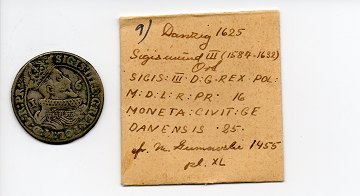 9) Danzig 1625
Sigismund III (1587-1632)
Ort
SIGIS: III · D: G · REX · POL:
M: D: L: R: PR· 16
MONETA: CIVIT: GE
DANENSIS · 25·
cf. M. Gumowski 1455
pl. XL
SIGIS III